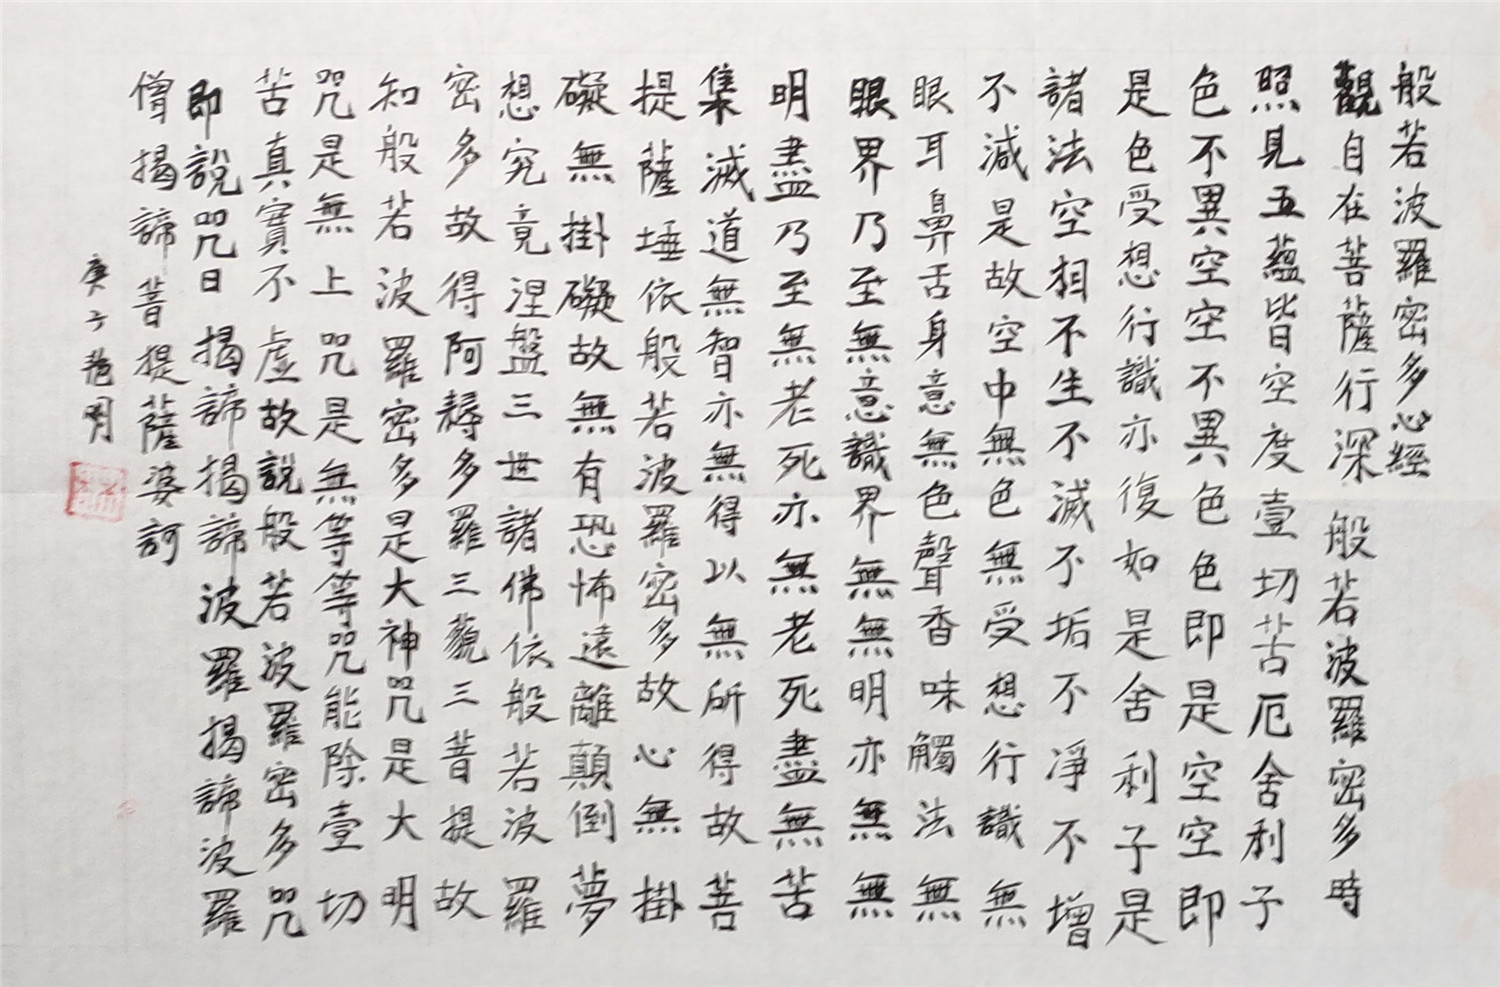 般若波羅密多心經
觀自在菩薩行深般若波羅密多時
照見五蘊皆空度壹切苦厄舍利子
色不異空空不異色色即是空空即
是色受想行識亦復如是舍利子是
諸法空相不生不滅不垢不淨不增
不減是故空中無色無受想行識無
眼耳鼻舌身意無色聲香味觸法無
眼界乃至無意識界無無明亦無無
明盡乃至無老死亦無老死盡無苦
集滅道無智亦無得以無所得故菩
提薩埵依般若波羅密多故心無掛
礙無掛礙故無有恐怖遠離顛倒夢
想究竟涅盤三世諸佛依般若波羅
密多故得阿耨多羅三藐三菩提故
知般若波羅密多是大神咒是大明
咒是無上咒是無等等咒能除壹切
苦真實不虛故說般若波羅密多咒
即說咒曰揭諦揭諦波羅揭諦波羅
僧揭諦菩提薩婆訶
庚子 明